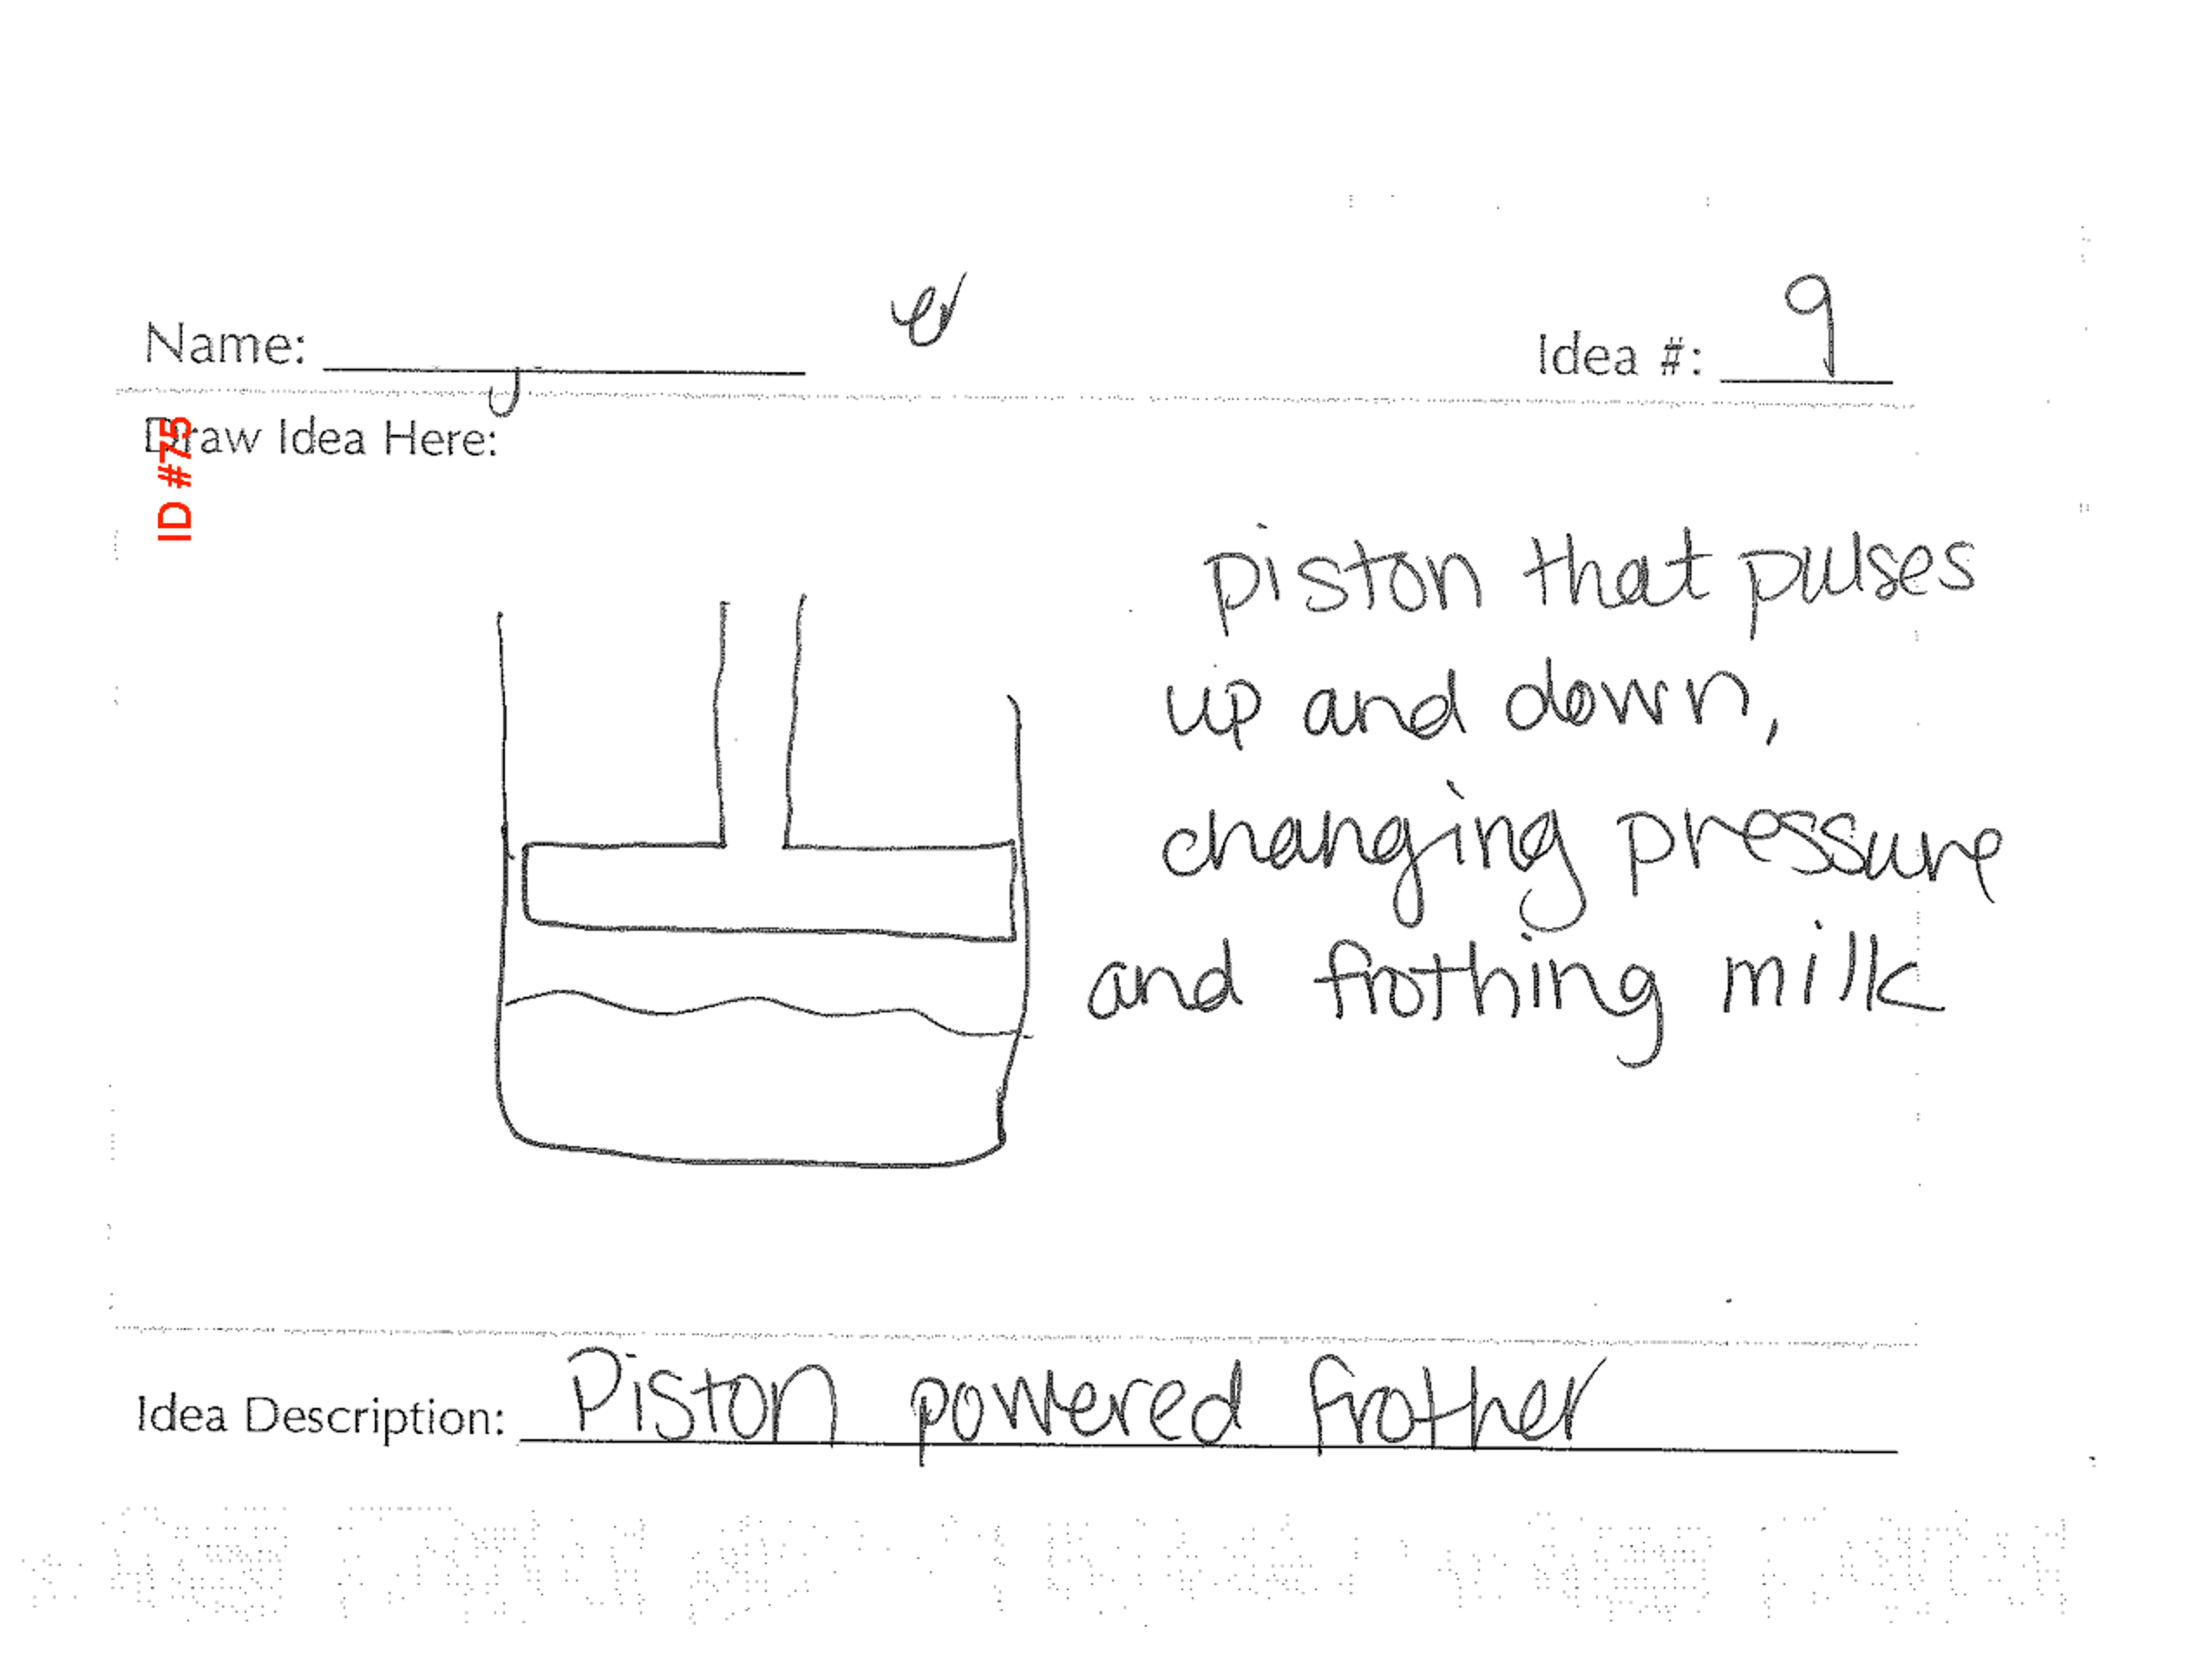 Name:
Idea #: 9
Draw Idea Here:
ID #75
piston that pulses
up and down,
changing pressure
and frothing milk
Idea Description: Piston powered frother